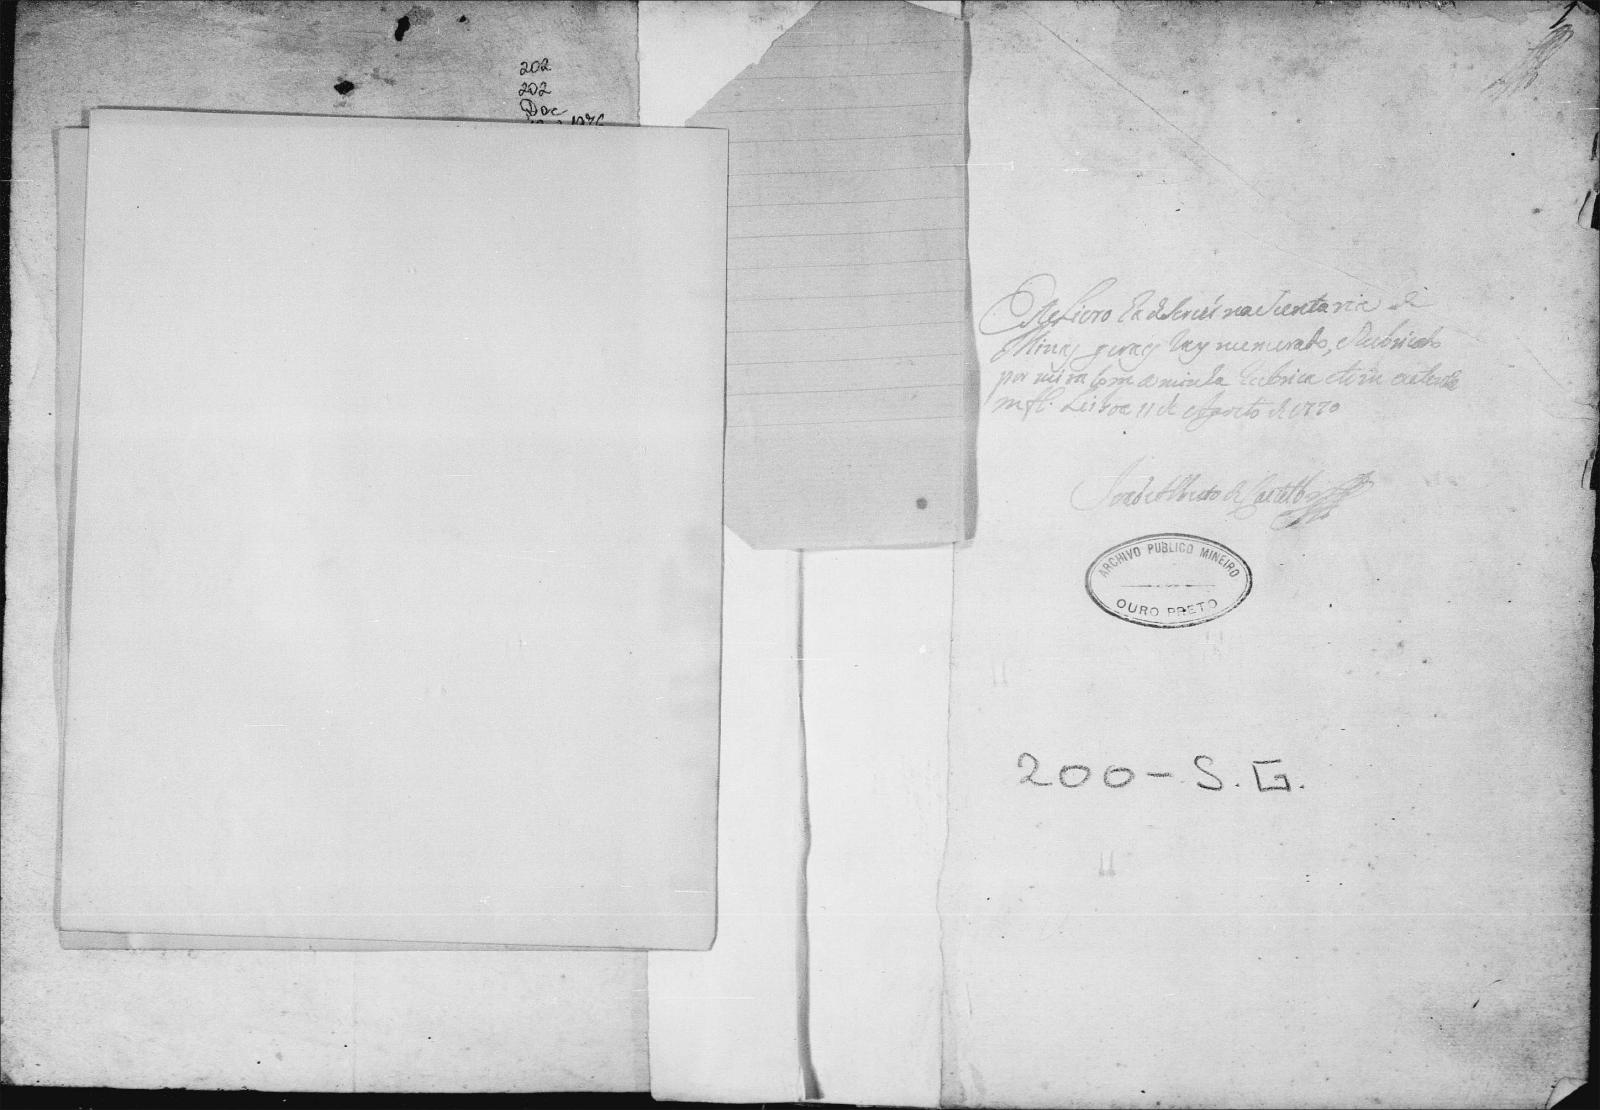 202
202
Doc
1
Este Livro ha de servir na Secretaria de
Minas geraes vay numerado, e Rubricado
por mim com a minha Rubrica e tem
no fl. Lisboa 11 de Agosto de 1770
de Castello
ARCHIVO PUBLICO MINEIRO
OURO PRETO
200 - S. G.